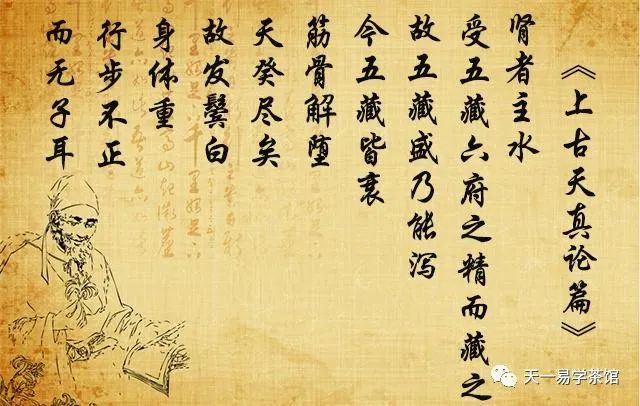 《上古天真论篇》
肾者主水
受五藏六府之精而藏之
故五藏盛乃能泻
今五藏皆衰
筋骨解堕
天癸尽矣
故发鬓白
身体重
行步不正
而无子耳
天一易学茶馆